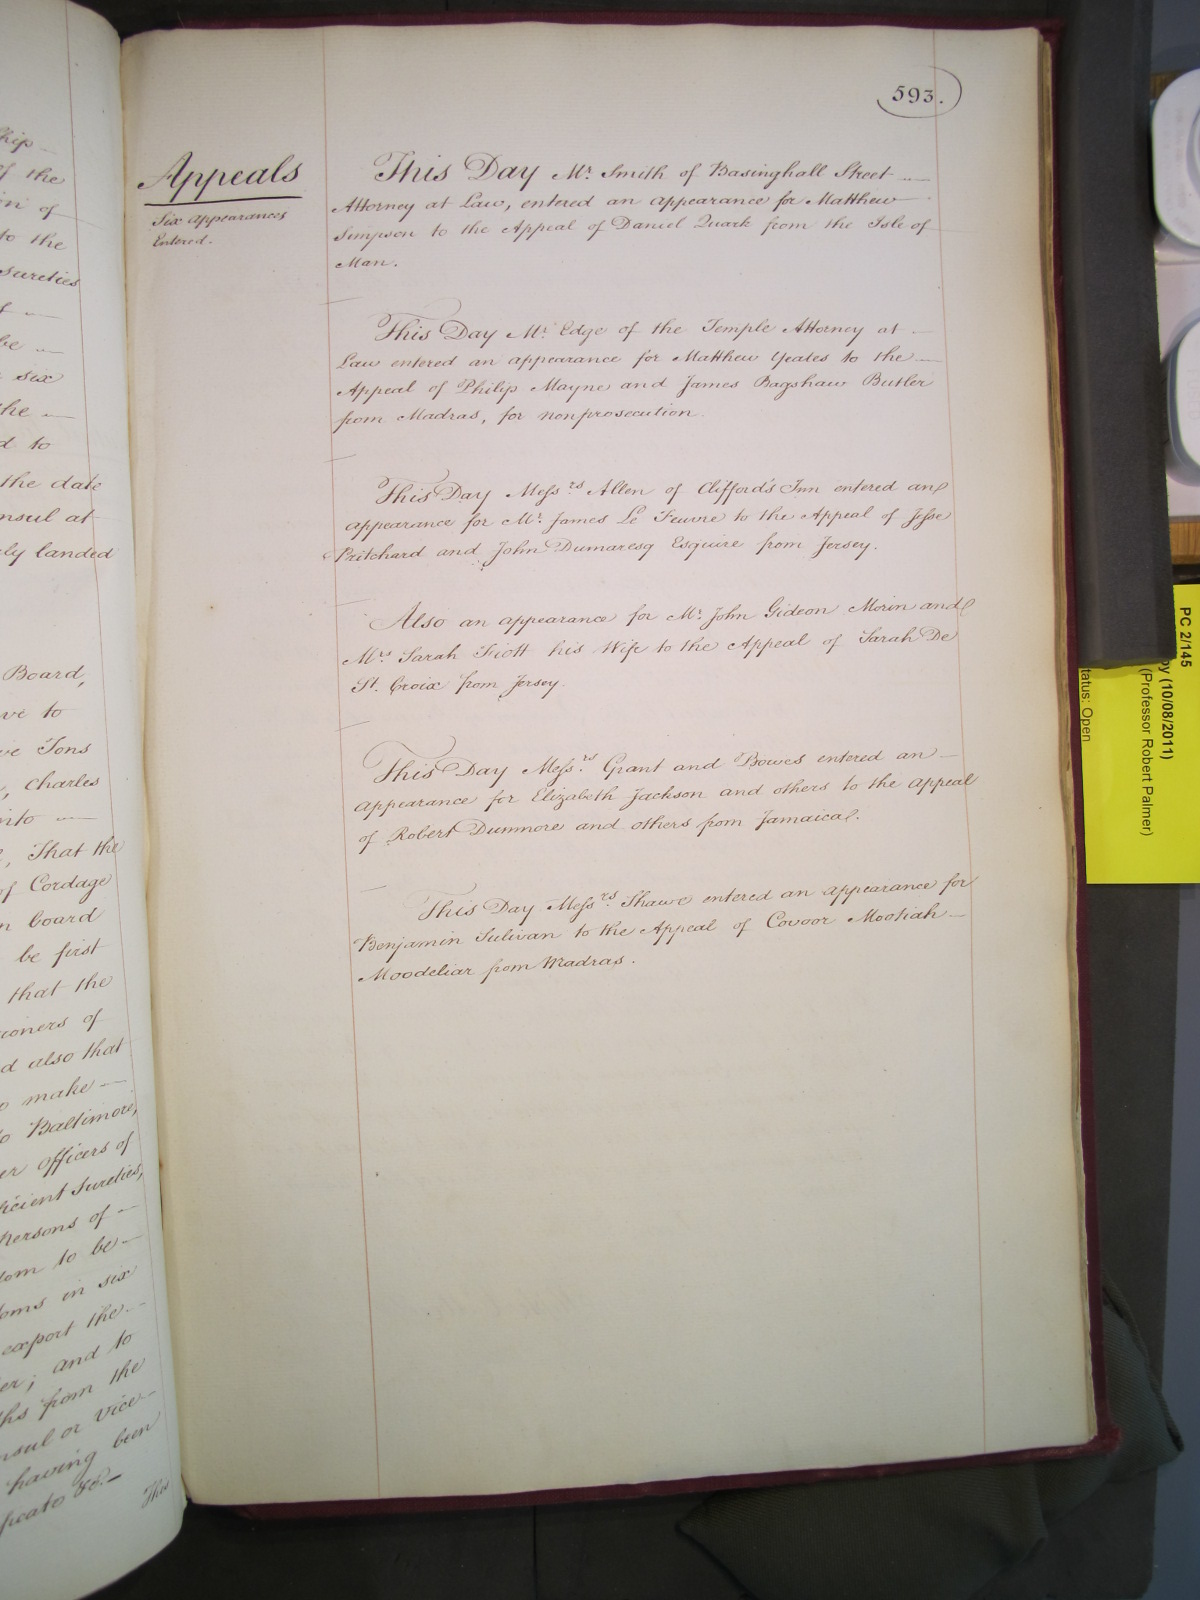 593.
Appeals
Six appearances
Entered.
This Day Mr. Smith of Basinghall Street
Attorney at Law, entered an appearance for Matthew
Simpson to the Appeal of Daniel Quark from the Isle of
Man.
This Day Mr. Edge of the Temple Attorney at
Law entered an appearance for Matthew Yeates to the
Appeal of Philip Mayne and James Bagshaw Butler
from Madras, for nonprosecution.
This Day Messrs. Allen of Clifford's Inn entered an
appearance for Mr. James Le Feuvre to the Appeal of Jesse
Pritchard and John Dumaresq Esquire from Jersey.
Also an appearance for Mr. John Gideon Morin and
Mrs. Sarah Fiott his Wife to the Appeal of Sarah De
St. Croix from Jersey.
This Day Messrs. Grant and Bowes entered an
appearance for Elizabeth Jackson and others to the appeal
of Robert Dunmore and others from Jamaica.
This Day Messrs. Shawe entered an appearance for
Benjamin Sulivan to the Appeal of Covoor Mootiah
Moodeliar from Madras.
hip
of the
on of
to the
sureties
be
six
the
d to
the date
nsul at
ly landed
Board,
ve to
ve Tons
, Charles
into
, That the
of Cordage
n board
be first
that the
ioners of
d also that
o make
o Baltimore,
er officers of
ficient Sureties,
Persons of
dom to be
toms in six
export the
er; and to
ths from the
nsul or Vice
having been
ficate &c.
This
PC 2/145
by (10/08/2011)
(Professor Robert Palmer)
tatus: Open